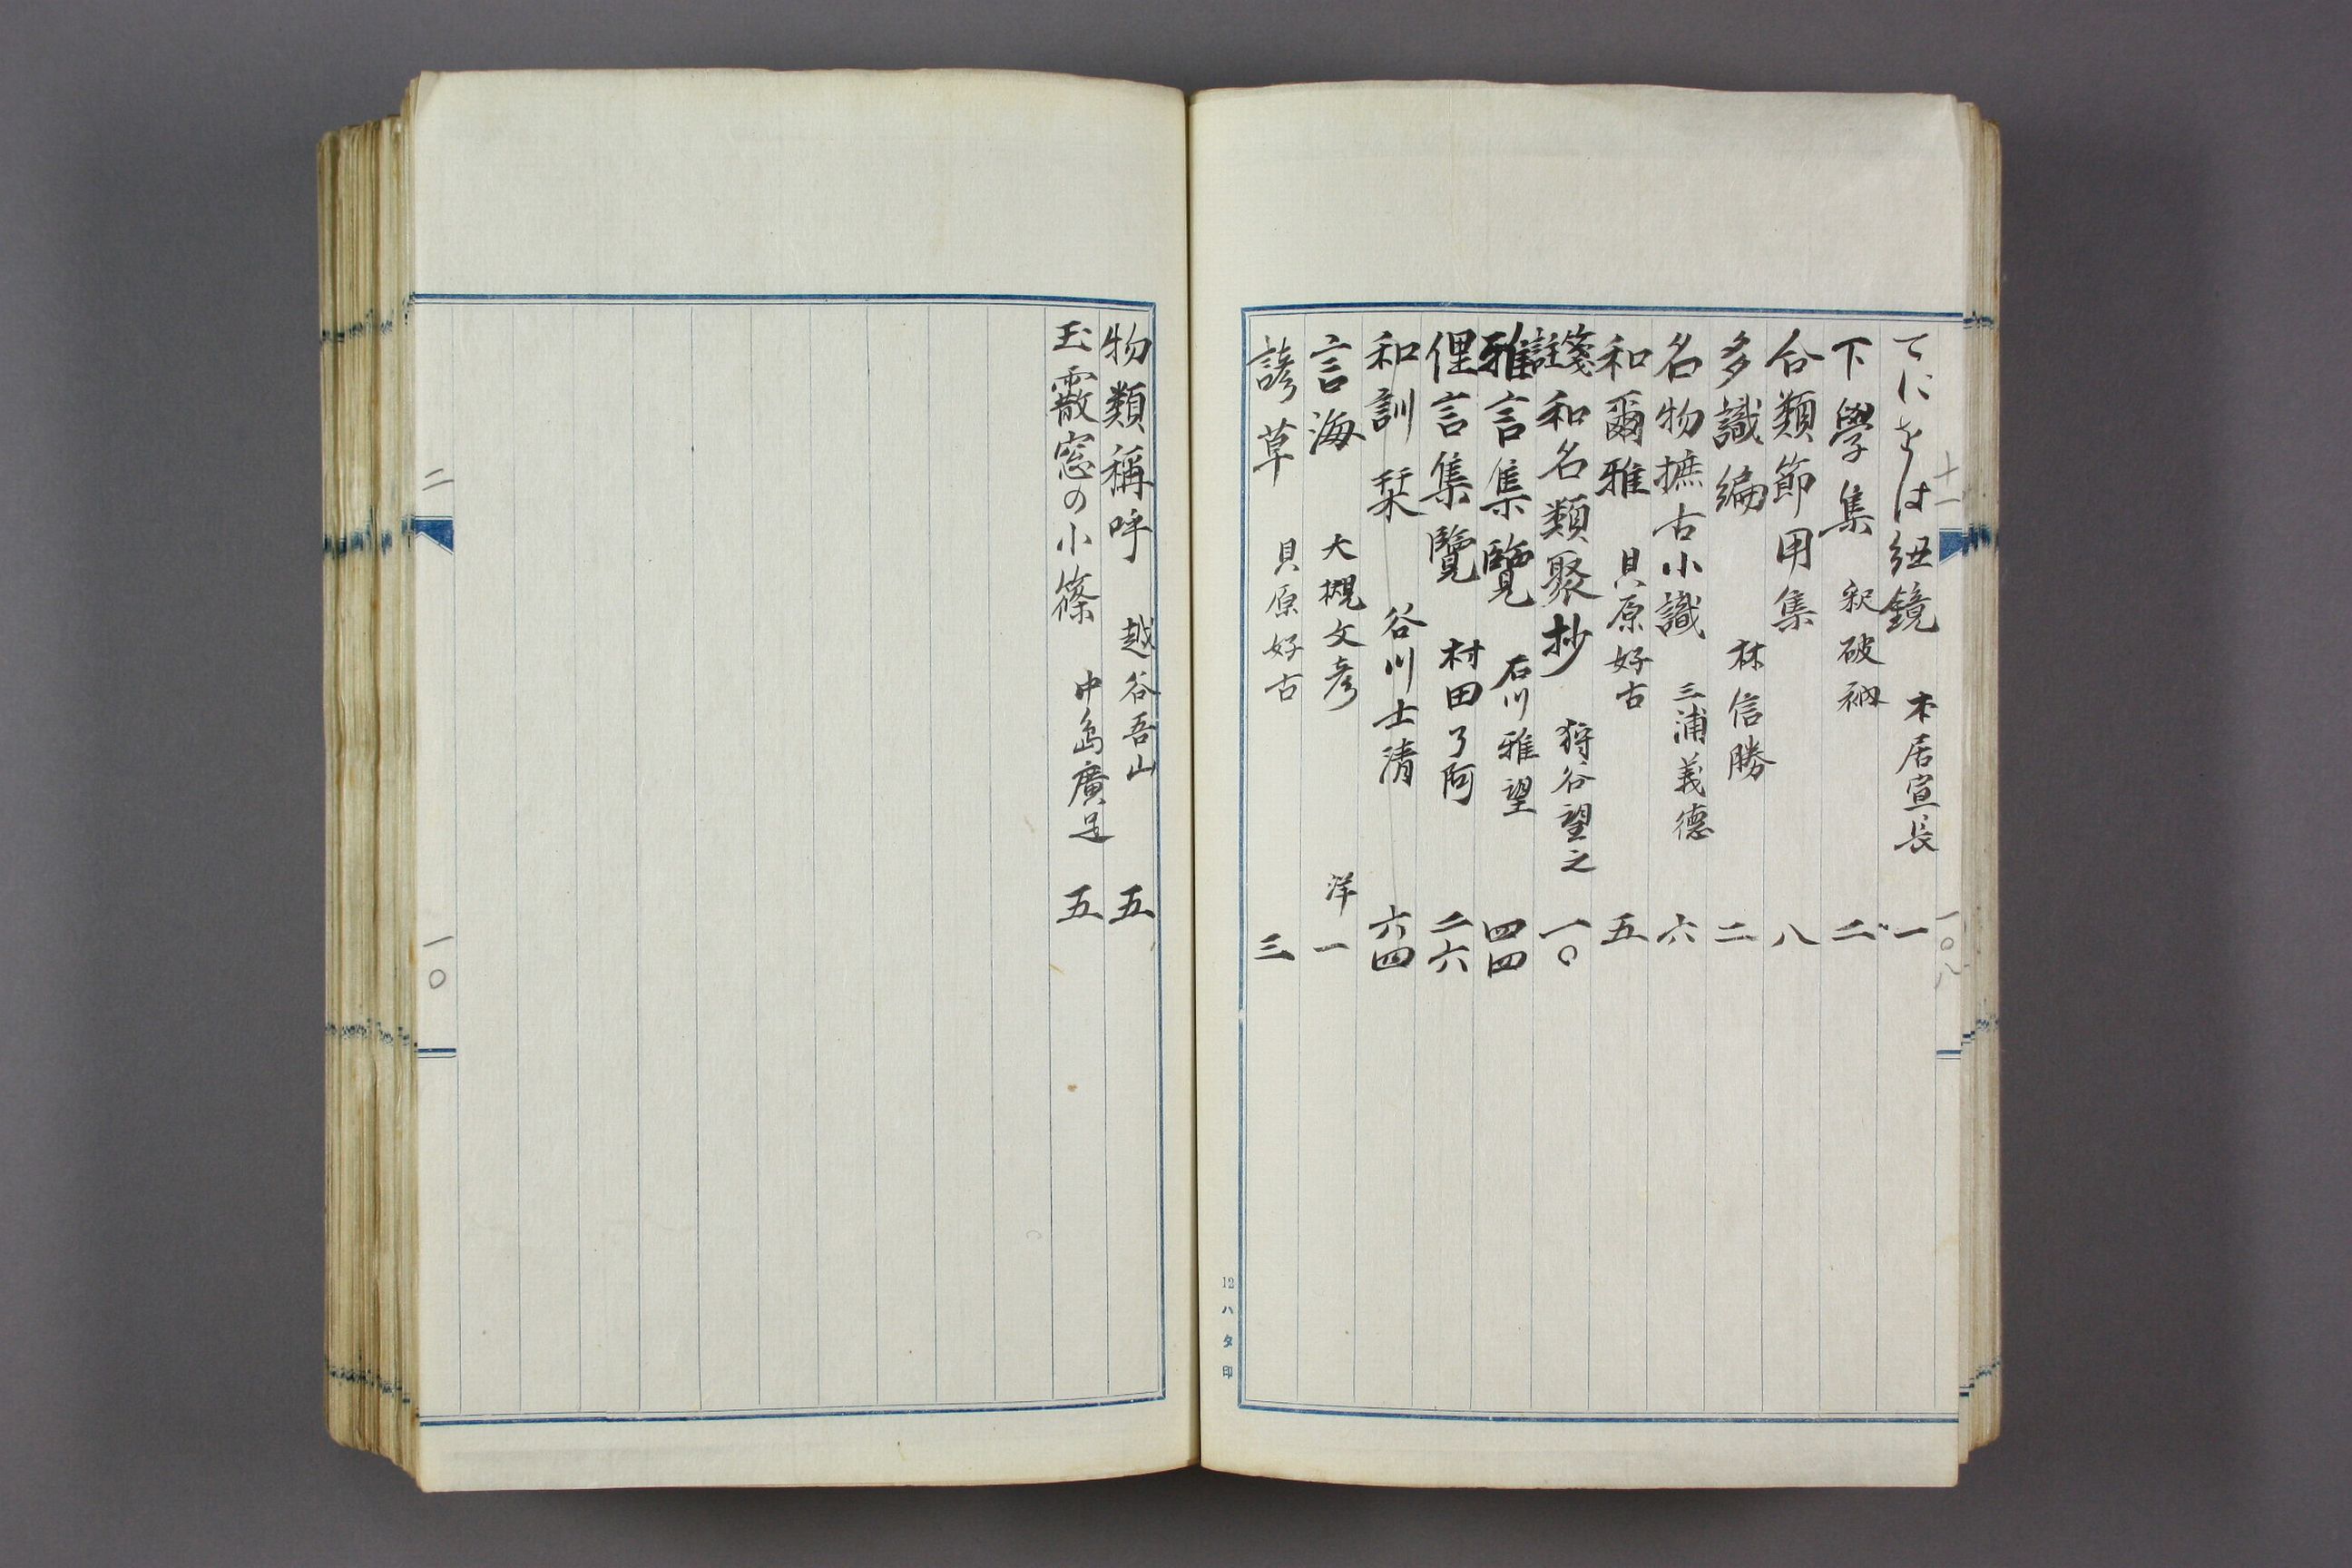 十一
一〇八
てにをは紐鏡 本居宣長 一
下學集 釈破衲 二
合類節用集 八
多識編 林信勝 二
名物摭古小識 三浦義德 六
和爾雅 貝原好古 五
箋註和名類聚抄 狩谷望之 一〇
雅言集覽 石川雅望 四四
俚言集覽 村田了阿 二六
和訓栞 谷川士清 六四
言海 大槻文彦 洋一
諺草 貝原好古 三
12ハタ印
物類稱呼 越谷吾山 五
玉霰窓の小篠 中島廣足 五
二
一〇